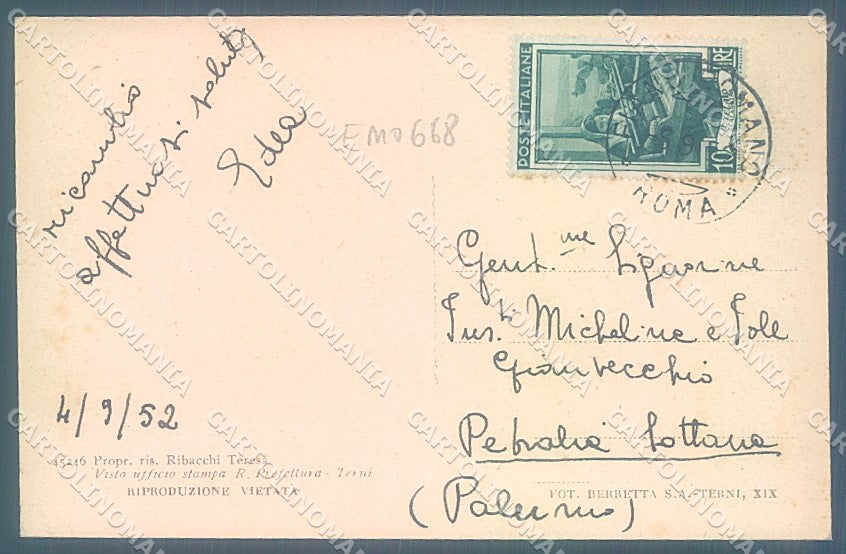 ricambio
affettuosi saluti
Edea
EMO668
POSTE ITALIANE
10 LIRE
ROMANO
ROMA
Gent.me Signorine
Ins.ti Micheline e Iole
Gianvecchio
Petralia Sottana
(Palermo)
4/9/52
45246 Propr. ris. Ribacchi Teresa
Visto ufficio stampa R. Prefettura - Terni
RIPRODUZIONE VIETATA
FOT. BERRETTA S.A.-TERNI, XIX
CARTOLINOMANIA